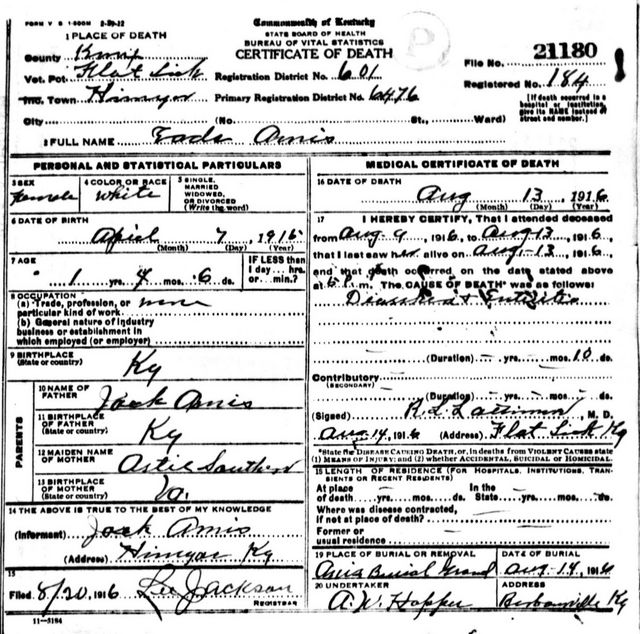 FORM V. S. 1-500M 2-29-12
Commonwealth of Kentucky
STATE BOARD OF HEALTH
BUREAU OF VITAL STATISTICS
CERTIFICATE OF DEATH
1 PLACE OF DEATH
County Knox
Vot. Pct Flat Lick
Inc. Town Himyar
City (No. St., Ward)
Registration District No. 601
Primary Registration District No. 6476
File No. 21180
Registered No. 184
[If death occurred in a
hospital or institution,
give its NAME instead of
street and number.]
2 FULL NAME Amis
PERSONAL AND STATISTICAL PARTICULARS
3 SEX
Female
4 COLOR OR RACE
White
5 SINGLE,
MARRIED
WIDOWED,
OR DIVORCED
(Write the word)
6 DATE OF BIRTH
April 7, 1915
(Month) (Day) (Year)
7 AGE
1 yrs. 4 mos. 6 ds.
IF LESS than
1 day ... hrs.
or ... min.?
8 OCCUPATION
(a) Trade, profession, or none
particular kind of work
(b) General nature of industry
business or establishment in
which employed (or employer)
9 BIRTHPLACE
(State or country) Ky
PARENTS
10 NAME OF
FATHER Jack Amis
11 BIRTHPLACE
OF FATHER
(State or country) Ky
12 MAIDEN NAME
OF MOTHER Southern
13 BIRTHPLACE
OF MOTHER
(State or country) Va.
14 THE ABOVE IS TRUE TO THE BEST OF MY KNOWLEDGE
(Informant) Jack Amis
(Address) Himyar Ky
15
Filed 8/20, 1916 Lee Jackson
REGISTRAR
11-3184
MEDICAL CERTIFICATE OF DEATH
16 DATE OF DEATH
Aug 13, 1916
(Month) (Day) (Year)
17 I HEREBY CERTIFY, That I attended deceased
from Aug 9, 1916, to Aug 13, 1916,
that I last saw her alive on Aug 13, 1916,
and that death occurred, on the date stated above
at 6 P. m. The CAUSE OF DEATH* was as follows:
(Duration) yrs. mos. 10 ds.
Contributory
(SECONDARY)
(Duration) yrs. mos. ds.
(Signed) M. D.
Aug 14, 1916 (Address) Flat Lick Ky
*State the DISEASE CAUSING DEATH, or, in deaths from VIOLENT CAUSES state
(1) MEANS OF INJURY; and (2) whether ACCIDENTAL, SUICIDAL or HOMICIDAL.
18 LENGTH OF RESIDENCE (FOR HOSPITALS, INSTITUTIONS, TRAN-
SIENTS OR RECENT RESIDENTS)
At place In the
of death yrs. mos. ds. State yrs. mos. ds.
Where was disease contracted,
if not at place of death?
Former or
usual residence
19 PLACE OF BURIAL OR REMOVAL
Burial Ground
DATE OF BURIAL
Aug. 14, 1916
20 UNDERTAKER
A. W. Hopper
ADDRESS
Barbourville Ky